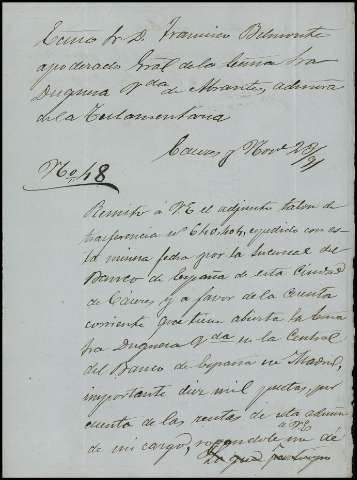 Excmo Sr. D. Francisco Belmonte
apoderado Gral de la Excma Sra
Duquesa Vda de Abrantes, admora
de la Testamentaria
Caceres y Nove 23/91
No. 48
Remito á V.E el adjunto talon de
trasferencia nº 640.404, espedido con es-
ta misma fecha por la Sucursal del
Banco de España de esta Ciudad
de Cáceres y a favor de la Cuenta
corriente que tiene abierta la Excma
Sra Duquesa Vda en la Central
del Banco de España en Madrid,
importante diez mil pesetas, por
cuenta de las rentas de esta admon
de mi cargo, rogandole á V.E me dé